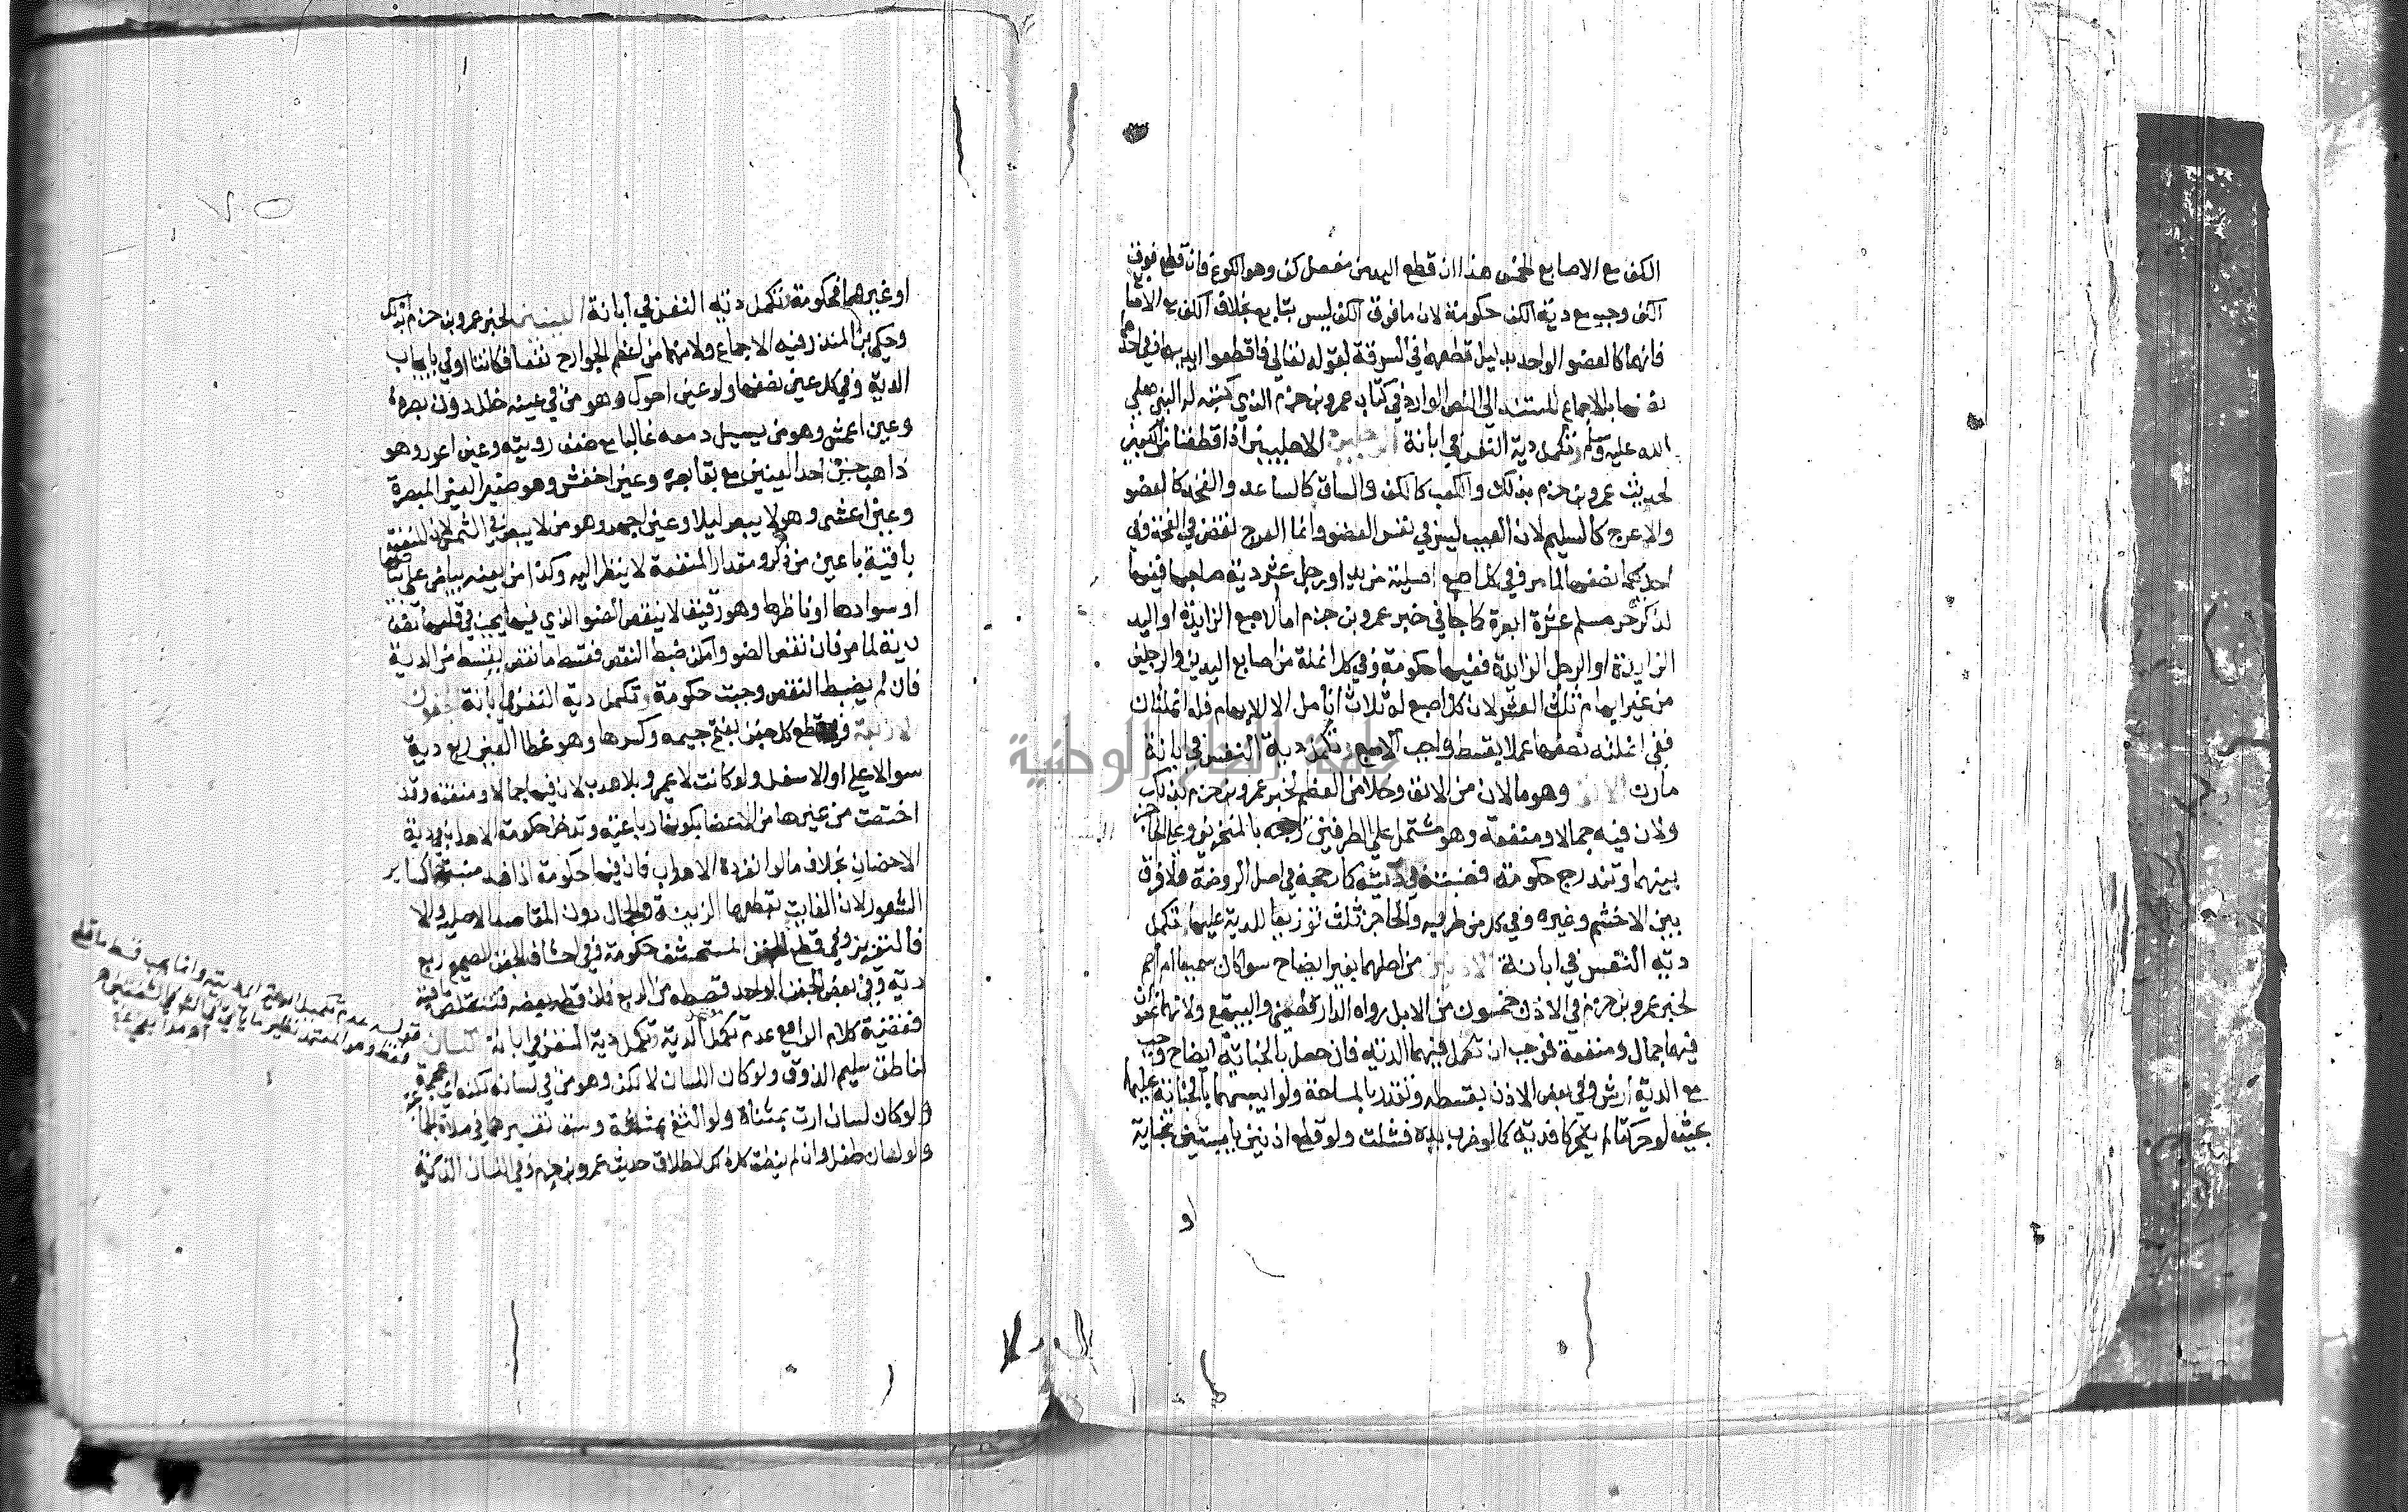 الكف مع الاصابع الخمس هذا ان قطع اليد من مفصل كف وهو الكوع فان قطع فوق
الكف وجب مع دية الكف حكومة لان ما فوق الكف ليس بتابع بخلاف الكف مع الاصابع
فانهما كالعضو الواحد بدليل قطعهما في السرقة لقوله تعالى فاقطعوا ايديهما وفي احداهما
نصفها بالاجماع المستند الى النص الوارد في كتاب عمرو بن حزم الذي كتبه له النبي صلى
الله عليه وسلم وتكمل دية النفس في ابانة الرجلين الاصليتين اذا قطعتا من الكعبين
لحديث عمرو بن حزم بذلك والكعب كالكف والساق كالساعد والفخذ كالعضو
والاعرج كالسليم لان العيب ليس في نفس العضو وانما العرج لنقص في الفخذ وفي
احديهما نصفها لما مر وفي كل اصبع اصلية من يد او رجل عشر دية صاحبها ففيها
لذكر حر مسلم عشرة ابعرة كما جا في خبر عمرو بن حزم اما الاصبع الزايدة او اليد
الزايدة او الرجل الزائدة ففيها حكومة وفي كل انملة من اصابع اليدين والرجلين
من غير ابهام ثلث العشر لان كل اصبع له ثلاث انامل الا الابهام فله انملتان
ففي انملته نصفها عملا بقسط واجب الاصبع وتكمل دية النفس في ابانة
مارن الانف وهو ما لان من الانف وخلا من العظم لخبر عمرو بن حزم بذلك
ولان فيه جمالا ومنفعة وهو مشتمل على الطرفين بالمنخرين وعلى الحاجز
بينهما وتندرج حكومة قصبته في ديته كما رجحه في اصل الروضة ولا فرق
بين الاخشم وغيره وفي كل من طرفيه والحاجز ثلث توزيعا للدية عليها وتكمل
دية النفس في ابانة الاذنين من اصلهما بغير ايضاح سوا كان سميعا ام اصم
لخبر عمرو بن حزم في الاذن خمسون من الابل رواه الدارقطني والبيهقي ولانهما عضوان
فيهما جمال ومنفعة فوجب ان تكمل فيهما الدية فان حصل بالجناية ايضاح وجب
مع الدية ارش وفي بعض الاذن بقسطه وتقدر بالمساحة ولو ايبسهما بالجناية عليهما
بحيث لو حركتا لم يتحركا فدية كما لو ضرب يده فشلت ولو قطع اذنين يابستين بجناية
او
او غيرها فحكومة وتكمل دية النفس في ابانة العينين لخبر عمرو بن حزم بذلك
وحكى ابن المنذر فيه الاجماع ولانهما من اعظم الجوارح نفعا فكانتا اولى بايجاب
الدية وفي كل عين نصفها ولو عين احول وهو من في عينه خلل دون بصره
وعين اعمش وهو من يسيل دمعه غالبا مع ضعف رويته وعين اعور وهو
ذاهب حس احد العينين مع بقا بصره وعين اخفش وهو صغير العين المبصرة
وعين اعشى وهو لا يبصر ليلا وعين اجهر وهو من لا يبصر في الشمس لان المنفعة
باقية باعين من ذكر ومقدار المنفعة لا ينظر اليه وكذا من بعينه بياض على بياضها
او سوادها او ناظرها وهو رقيق لا ينقص الضو الذي فيها يجب في قلعها نصف
دية لما مر فان نقص الضو وامكن ضبط النقص فقسط ما نقص يقسط من الدية
فان لم ينضبط النقص وجبت حكومة وتكمل دية النفس في ابانة الجفون
الاربعة وفي قطع كل جفن بفتح جيمه وكسرها وهو غطا العين ربع دية
سوا الاعلى او الاسفل ولو كانت لاعمى وبلا هدب لان فيها جمالا ومنفعة وقد
اختصت من غيرها من الاعضا بكونها رباعية وتدخل حكومة الاهداب في دية
الاجفان بخلاف ما لو انفردت الاهداب فان فيها حكومة اذا فسد منبتها كساير
الشعور لان الفايت بقطعها الزينة والجمال دون المقاصد الاصلية والا
فالتعزير وفي قطع الجفن المستحشف حكومة وفي احشاف الجفن الصحيح ربع
دية وفي بعض الجفن الواحد قسطه من الربع فان قطع بعضه فتقلص باقيه
فقضية كلام الرافعي عدم تكميل الدية وتكمل دية النفس في ابانة اللسان
لناطق سليم الذوق ولو كان اللسان لالكن وهو من في لسانه لكنة اي عجمة
ولو كان لسان ارت بمثناة ولو الثغ بمثلثة وسبق تفسيرهما في صلاة الجماعة
ولو لسان طفل وان لم ينطق كل ذلك لاطلاق حديث عمرو بن حزم وفي اللسان الدية
قوله عدم تكميل الدية وانما يجب قسط ما قطع
فقط وهو المعتمد نظير ما ياتي